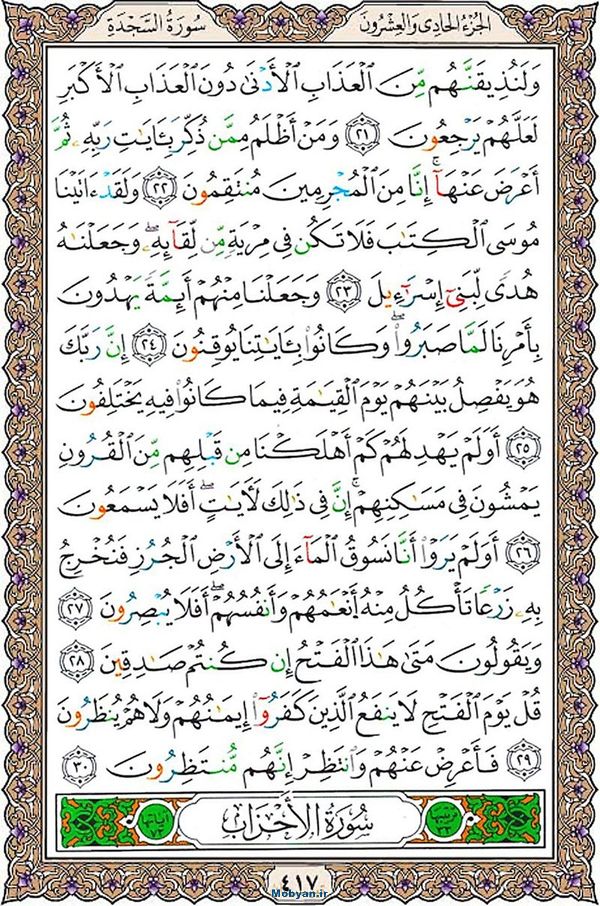 الجزء الحادي والعشرون سورة السجدة
وَلَنُذِيقَنَّهُم مِّنَ ٱلْعَذَابِ ٱلْأَدْنَىٰ دُونَ ٱلْعَذَابِ ٱلْأَكْبَرِ
لَعَلَّهُمْ يَرْجِعُونَ ٢١ وَمَنْ أَظْلَمُ مِمَّن ذُكِّرَ بِـَٔايَٰتِ رَبِّهِۦ ثُمَّ
أَعْرَضَ عَنْهَآ ۚ إِنَّا مِنَ ٱلْمُجْرِمِينَ مُنتَقِمُونَ ٢٢ وَلَقَدْ ءَاتَيْنَا
مُوسَى ٱلْكِتَٰبَ فَلَا تَكُن فِى مِرْيَةٍ مِّن لِّقَآئِهِۦ ۖ وَجَعَلْنَٰهُ
هُدًى لِّبَنِىٓ إِسْرَٰٓءِيلَ ٢٣ وَجَعَلْنَا مِنْهُمْ أَئِمَّةً يَهْدُونَ
بِأَمْرِنَا لَمَّا صَبَرُوا۟ ۖ وَكَانُوا۟ بِـَٔايَٰتِنَا يُوقِنُونَ ٢٤ إِنَّ رَبَّكَ
هُوَ يَفْصِلُ بَيْنَهُمْ يَوْمَ ٱلْقِيَٰمَةِ فِيمَا كَانُوا۟ فِيهِ يَخْتَلِفُونَ
٢٥ أَوَلَمْ يَهْدِ لَهُمْ كَمْ أَهْلَكْنَا مِن قَبْلِهِم مِّنَ ٱلْقُرُونِ
يَمْشُونَ فِى مَسَٰكِنِهِمْ ۚ إِنَّ فِى ذَٰلِكَ لَـَٔايَٰتٍ ۖ أَفَلَا يَسْمَعُونَ
٢٦ أَوَلَمْ يَرَوْا۟ أَنَّا نَسُوقُ ٱلْمَآءَ إِلَى ٱلْأَرْضِ ٱلْجُرُزِ فَنُخْرِجُ
بِهِۦ زَرْعًا تَأْكُلُ مِنْهُ أَنْعَٰمُهُمْ وَأَنفُسُهُمْ ۖ أَفَلَا يُبْصِرُونَ ٢٧
وَيَقُولُونَ مَتَىٰ هَٰذَا ٱلْفَتْحُ إِن كُنتُمْ صَٰدِقِينَ ٢٨
قُلْ يَوْمَ ٱلْفَتْحِ لَا يَنفَعُ ٱلَّذِينَ كَفَرُوٓا۟ إِيمَٰنُهُمْ وَلَا هُمْ يُنظَرُونَ
٢٩ فَأَعْرِضْ عَنْهُمْ وَٱنتَظِرْ إِنَّهُم مُّنتَظِرُونَ ٣٠
ترتيبها ٣٣ سورة الأحزاب آياتها ٧٣
٤١٧
Mobyan.ir